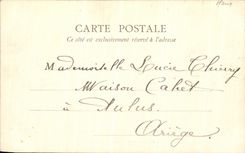 CARTE POSTALE
Ce côté est exclusivement réservé à l'adresse
Mademoiselle Lucie Thierry
Maison Cahet
à Aulus.
Ariège.